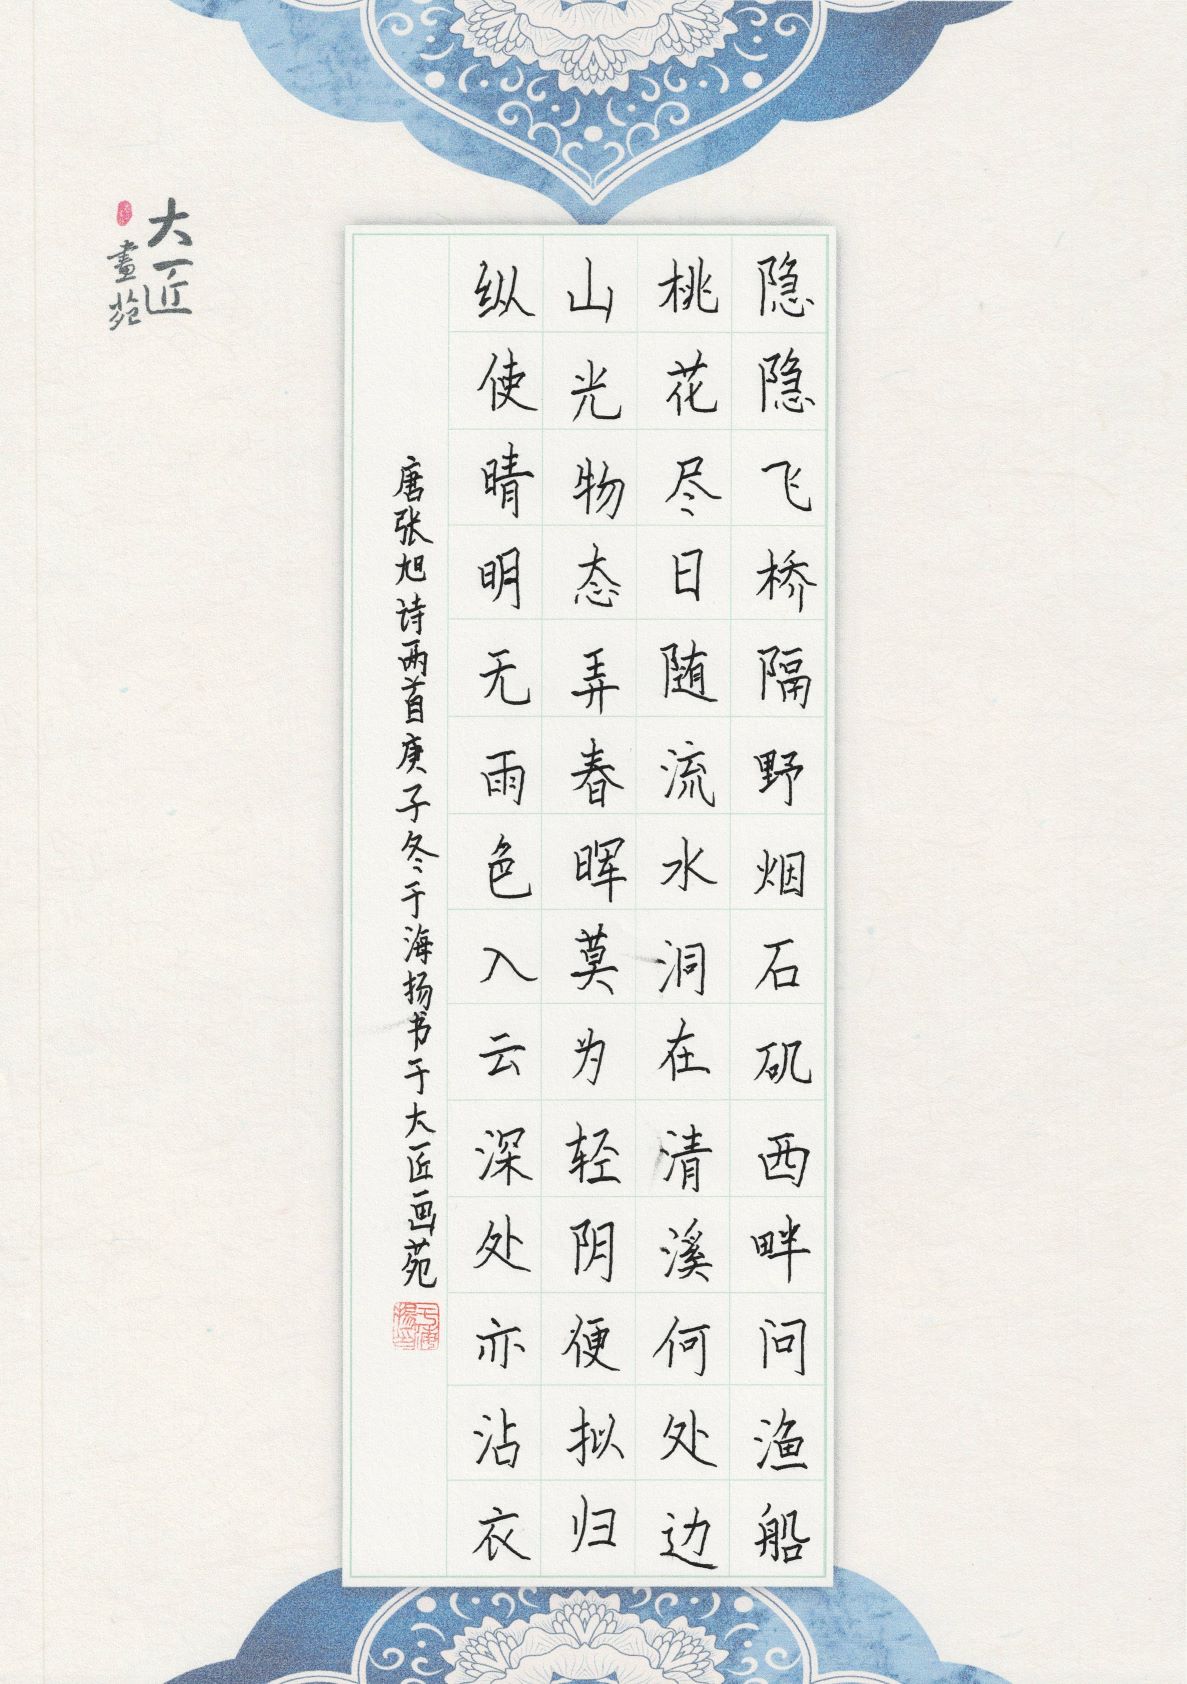 隐隐飞桥隔野烟石矶西畔问渔船
桃花尽日随流水洞在清溪何处边
山光物态弄春晖莫为轻阴便拟归
纵使晴明无雨色入云深处亦沾衣
唐张旭诗两首庚子冬于海扬书于大匠画苑
大匠
畫苑